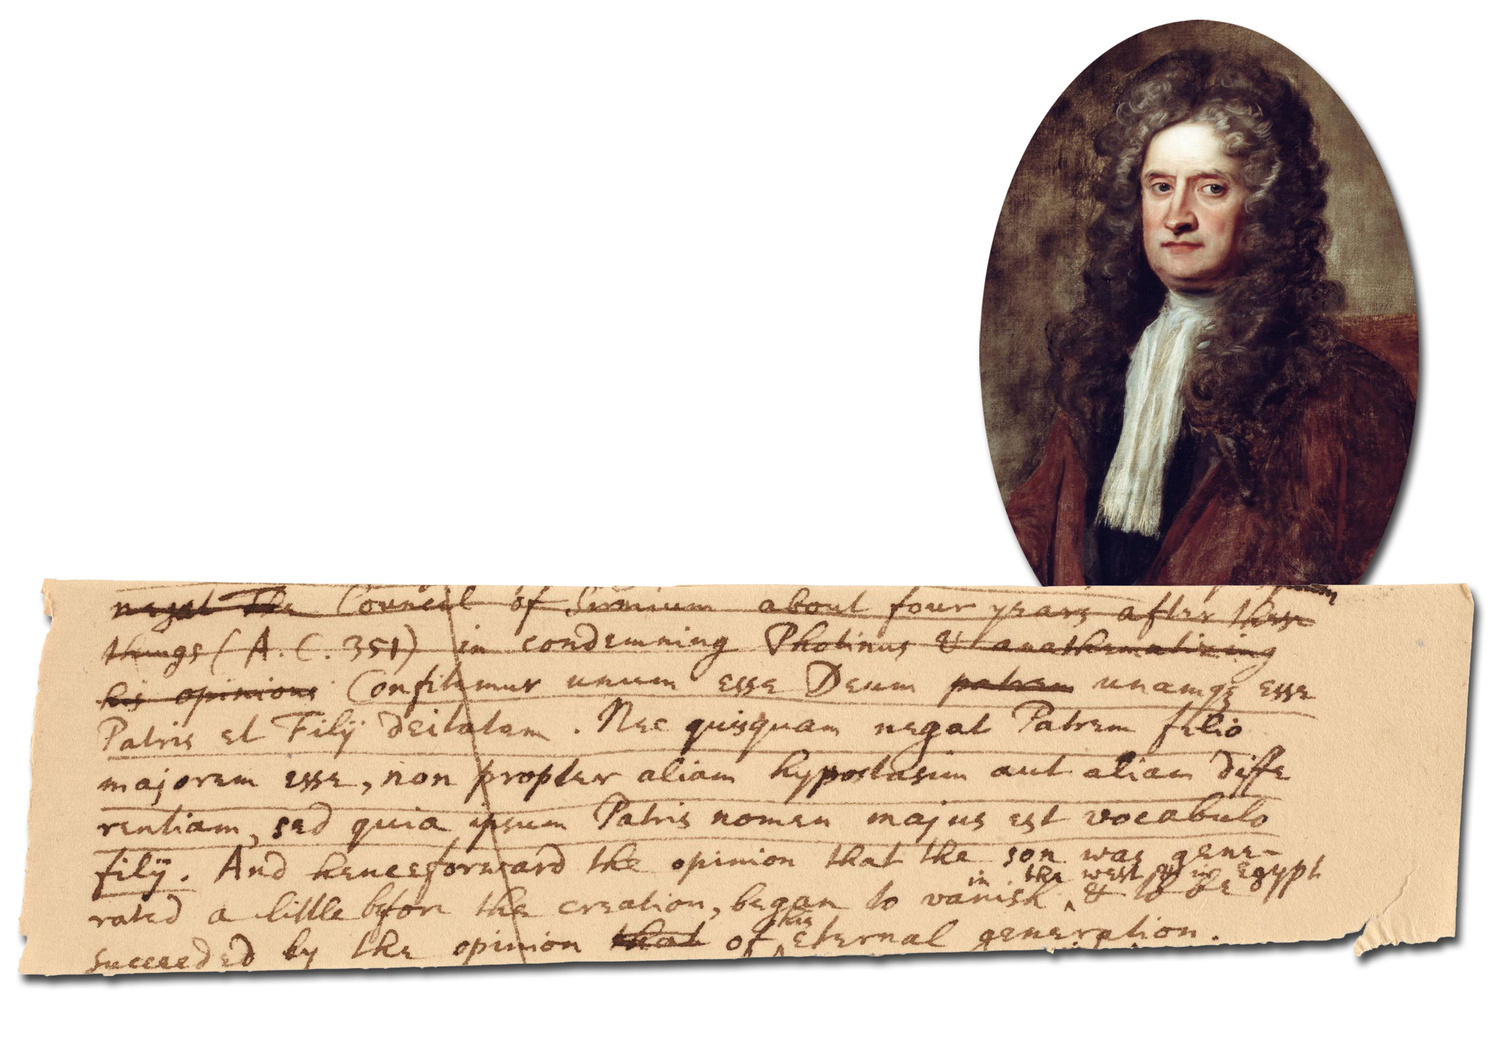 negat the Council of Sirmium about four years after these
things (A.C. 351) in condemning Photinus & anathematizing
his opinions Confitemur unum esse Deum patrem unamqꝫ esse
Patris et Filij deitatem. Nec quisquam negat Patrem filio
majorem esse, non propter aliam hypostasim aut aliam diffe
rentiam, sed quia ipsum Patris nomen majus est vocabulo
filij. And henceforward the opinion that the son was gene-
in the west Egypt
rated a little before the creation, began to vanish & to be
his
succeeded by the opinion that of eternal generation.